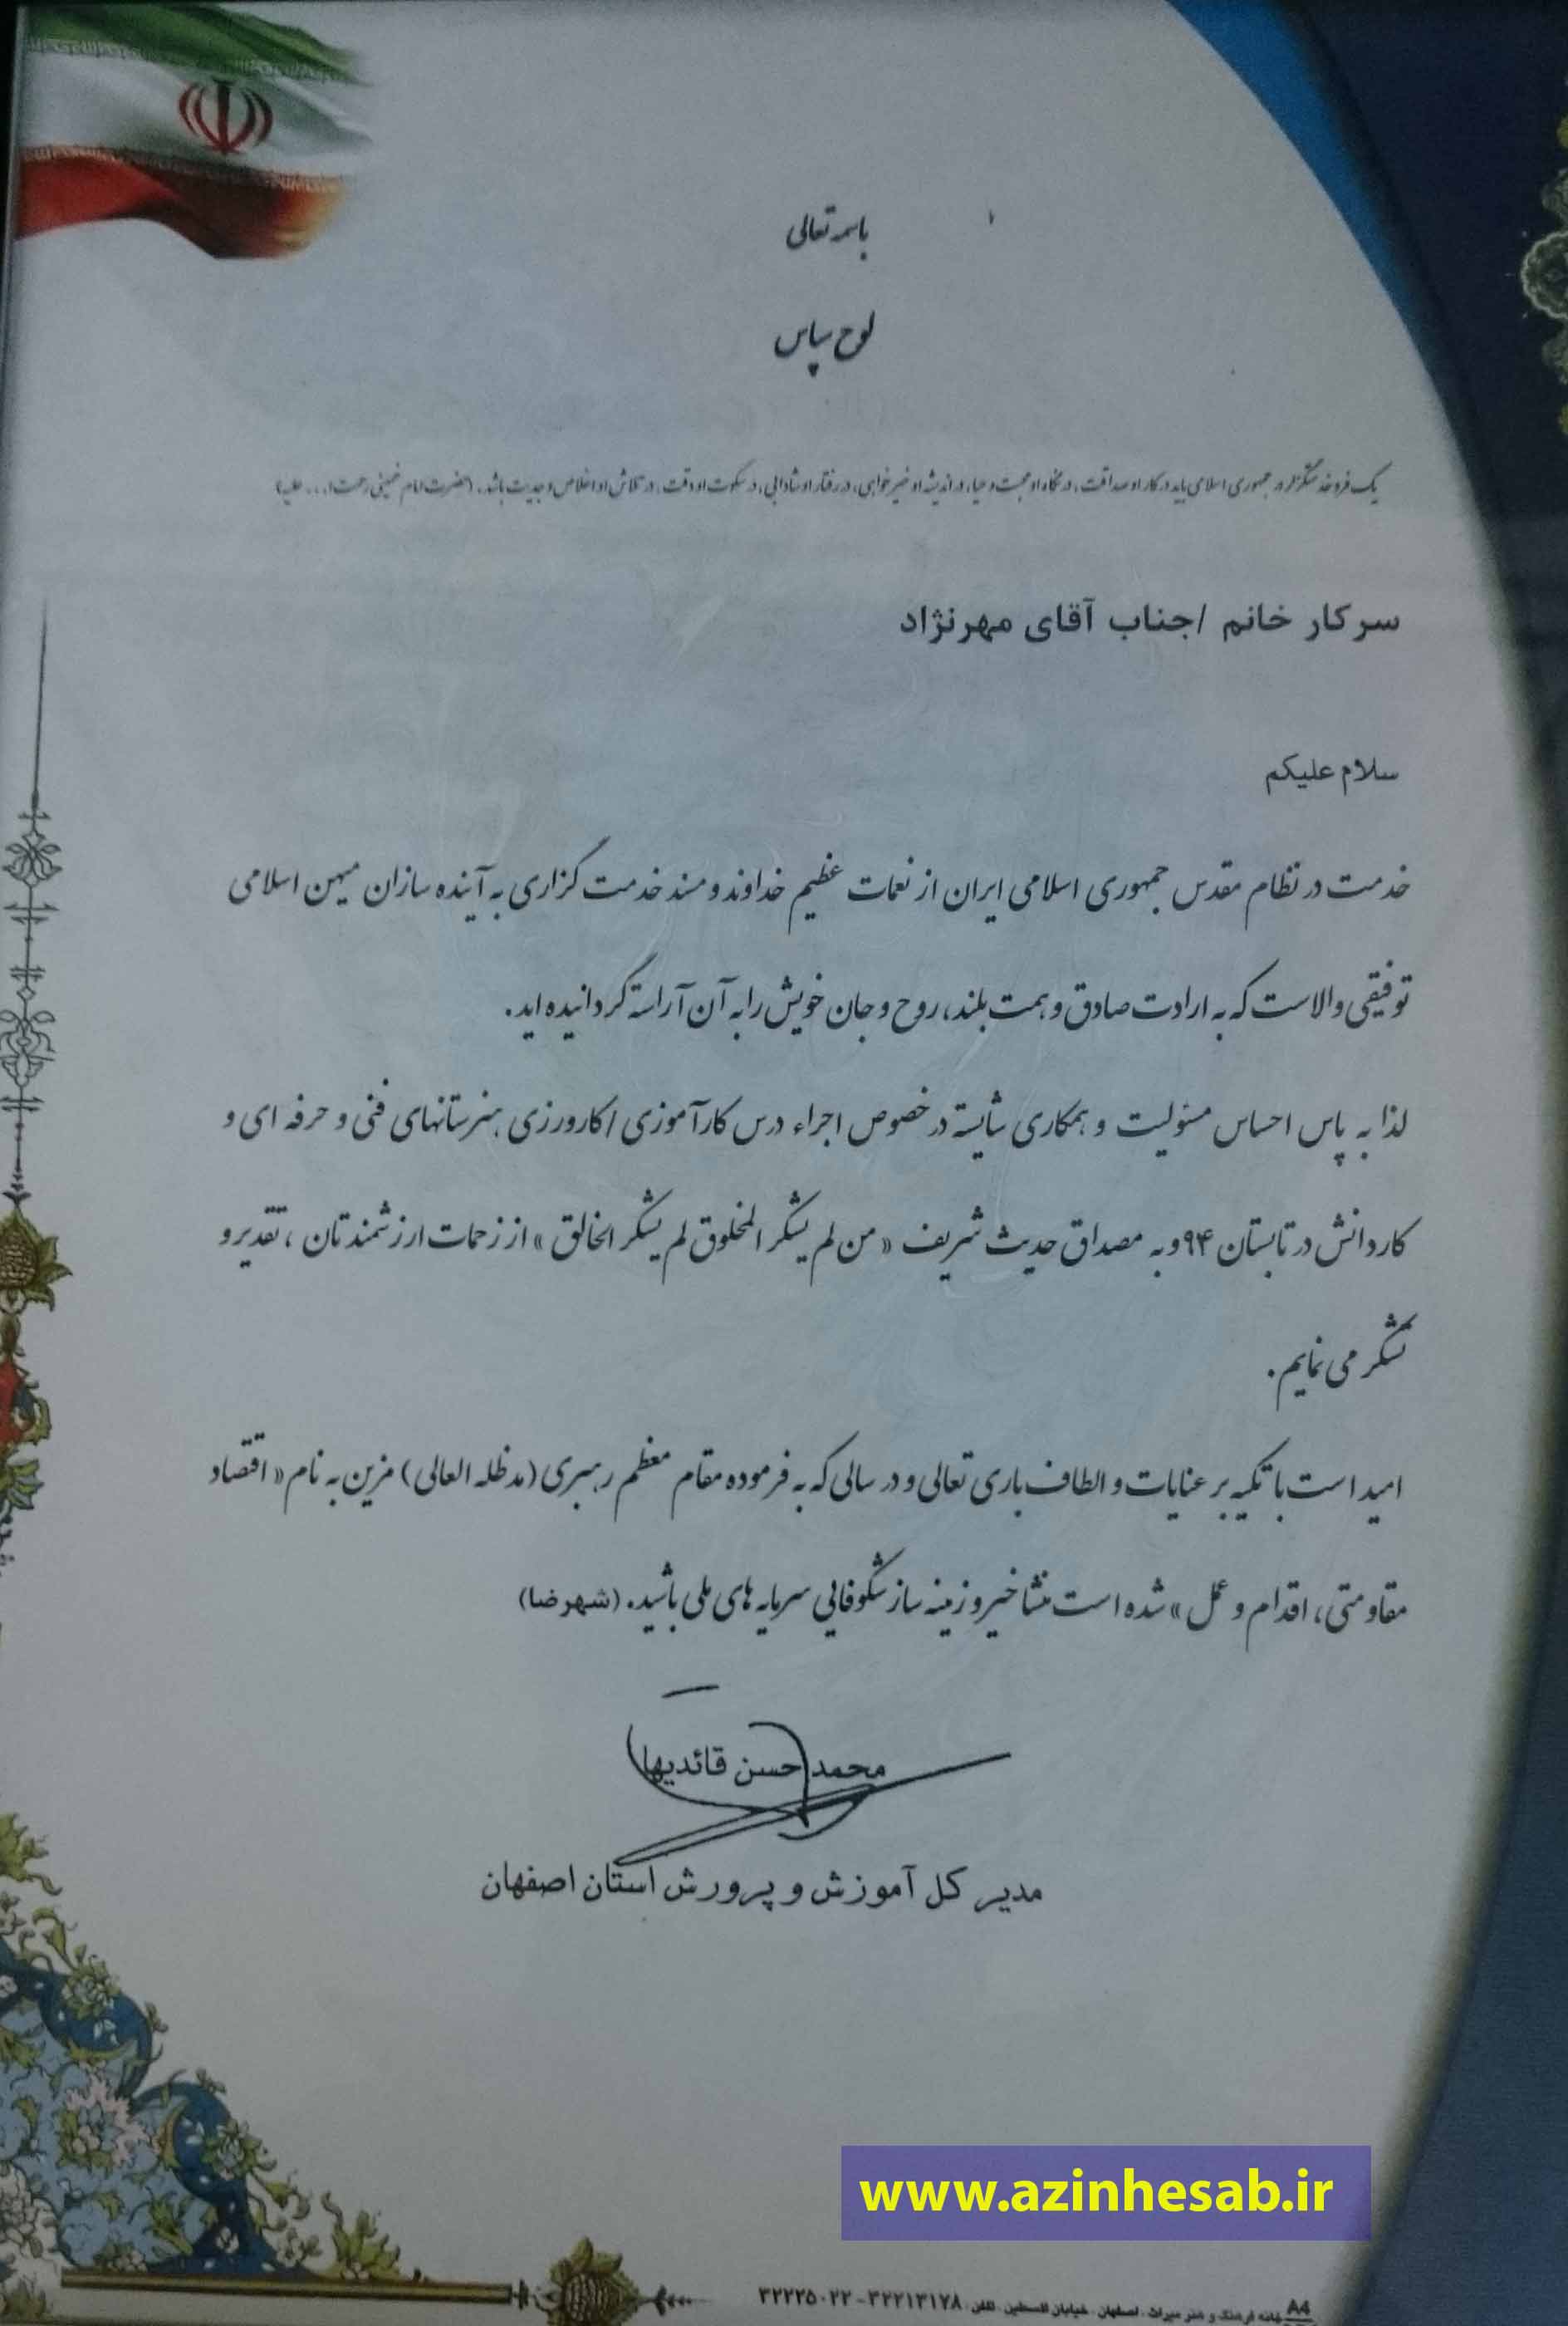 باسمه تعالی
لوح سپاس
یک فرد خدمتگزار در جمهوری اسلامی باید در کار او صداقت، در نگاه او محبت و حیا، در اندیشه او خیرخواهی، در رفتار او شادابی، در سکوت او دقت، در تلاش او اخلاص و جدیت باشد. (حضرت امام خمینی رحمت ا... علیه)
سرکار خانم /جناب آقای مهرنژاد
سلام علیکم
خدمت در نظام مقدس جمهوری اسلامی ایران از نعمات عظیم خداوند و مسند خدمت گزاری به آینده سازان میهن اسلامی
توفیقی والاست که به ارادت صادق و همت بلند، روح و جان خویش را به آن آراسته گردانیده اید.
لذا به پاس احساس مسئولیت و همکاری شایسته در خصوص اجراء درس کارآموزی / کارورزی هنرستانهای فنی و حرفه ای و
کاردانش در تابستان ۹۴ و به مصداق حدیث شریف «من لم یشکر المخلوق لم یشکر الخالق» از زحمات ارزشمندتان ، تقدیر و
تشکر می نمایم.
امید است با تکیه بر عنایات و الطاف باری تعالی و در سالی که به فرموده مقام معظم رهبری (مدظله العالی) مزین به نام «اقتصاد
مقاومتی، اقدام و عمل» شده است منشا خیر و زمینه ساز شکوفایی سرمایه های ملی باشید. (شهرضا)
محمد حسن قائدیها
مدیر کل آموزش و پرورش استان اصفهان
www.azinhesab.ir
A4 خانه فرهنگ و هنر میراث . اصفهان . خیابان فلسطین . تلفن: ۳۲۲۱۳۱۷۸ - ۳۲۲۲۵۰۲۲